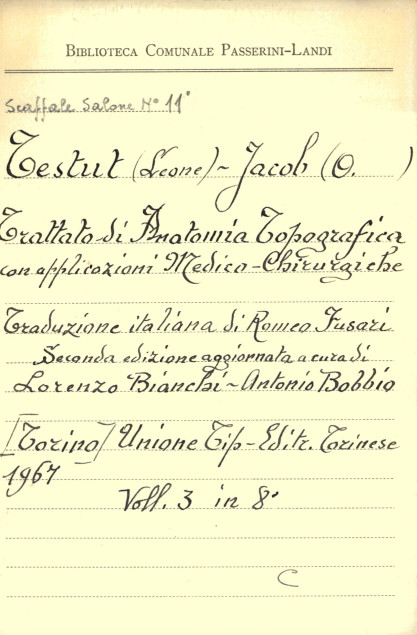 Biblioteca Comunale Passerini-Landi
Scaffale Salone N° 11°
Testut (Leone) - Jacob (O. )
Trattato di Anatomia Topografica
con applicazioni Medico-Chirurgiche
Traduzione italiana di Romeo Fusari
Seconda edizione aggiornata a cura di
Lorenzo Bianchi - Antonio Bobbio
[Torino] Unione Tip-Editr. Torinese
1967
Voll. 3 in 8°
C